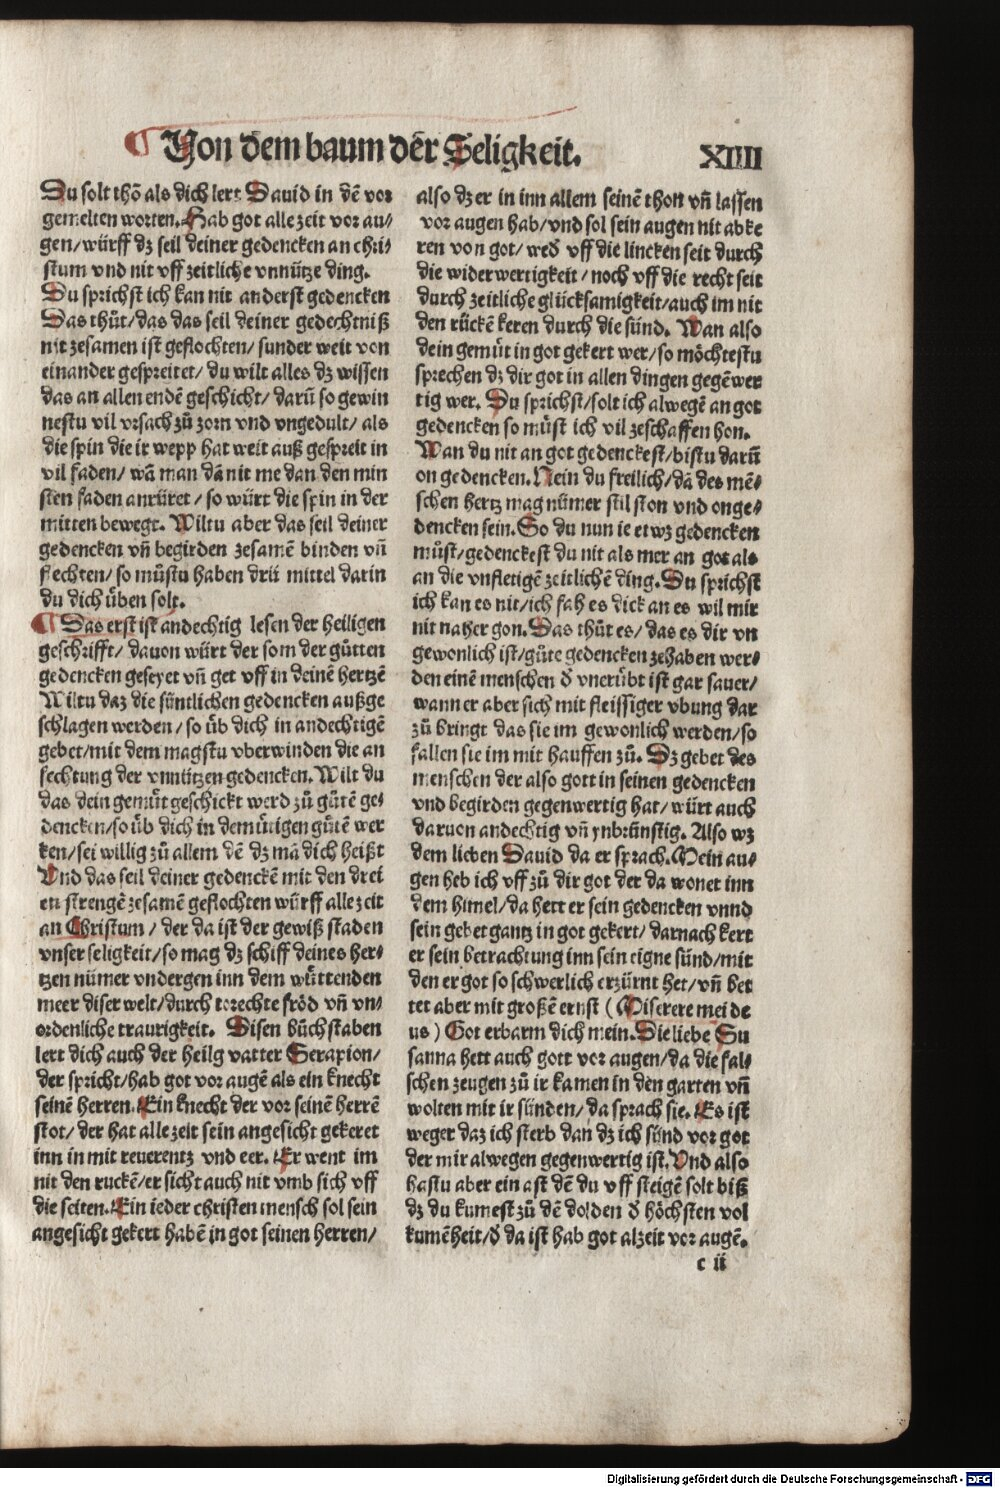 Von dem baum der Seligkeit.
XIIII
Du solt thō als dich lert Dauid in dē vor
gemelten worten. Hab got alle zeit vor au⸗
gen/würff dz seil deiner gedencken an chri⸗
stum vnd nit vff zeitliche vnnütze ding.
Du sprichst ich kan nit anderst gedencken
Das thůt/das das seil deiner gedechtniß
nit zesamen ist geflochten/sunder weit von
einander gespreitet/du wilt alles dz wissen
das an allen endē geschicht/darū so gewin
nestu vil vrsach zů zorn vnd vngedult/als
die spin die ir wepp hat weit auß gespreit in
vil faden/wā man dā nit me dan den min
sten faden anrüret/so würt die spin in der
mitten bewegt. Wiltu aber das seil deiner
gedencken vñ begirden zesamē binden vñ
flechten/so můstu haben drü mittel darin
du dich üben solt.
¶ Das erst ist andechtig lesen der heiligen
geschrifft/dauon würt der som der gůtten
gedencken geseyet vñ get vff in deinē hertzē
Wiltu daz die süntlichen gedencken außge
schlagen werden/so üb dich in andechtigē
gebet/mit dem magstu vberwinden die an
fechtung der vnnützen gedencken. Wilt du
das dein gemüt geschickt werd zů gůtē ge⸗
dencken/so üb dich in demütigen gůtē wer
ken/sei willig zů allem dē dz mā dich heißt
Vnd das seil deiner gedenckē mit den drei
en strengē zesamē geflochten würff alle zeit
an Christum/der da ist der gewiß staden
vnser seligkeit/so mag dz schiff deines her⸗
tzen nümer vndergen inn dem wüttenden
meer diser welt/durch torechte fröd vñ vn⸗
ordenliche traurigkeit. Disen bůchstaben
lert dich auch der heilg vatter Serapion/
der spricht/hab got vor augē als ein knecht
seinē herren. Ein knecht der vor seinē herrē
stot/der hat alle zeit sein angesicht gekeret
inn in mit reuerentz vnd eer. Er went im
nit den ruckē/er sicht auch nit vmb sich vff
die seiten. Ein ieder christen mensch sol sein
angesicht gekert habē in got seinen herren/
also dz er in inn allem seinē thon vñ lassen
vor augen hab/vnd sol sein augen nit abke
ren von got/weð vff die lincken seit durch
die widerwertigkeit/noch vff die recht seit
durch zeitliche glücksamigkeit/auch im nit
den rückē keren durch die sünd. Wan also
dein gemüt in got gekert wer/so möchtestu
sprechen dz dir got in allen dingen gegēwer
tig wer. Du sprichst/solt ich alwegē an got
gedencken so můst ich vil zeschaffen hon.
Wan du nit an got gedenckest/bistu darū
on gedencken. Nein du freilich/dā des mē⸗
schen hertz mag nümer stil ston vnd onge⸗
dencken sein. So du nun ie etwz gedencken
můst/gedenckest du nit als mer an got als
an die vnfletigē zeitlichē ding. Du sprichst
ich kan es nit/ich fah es dick an es wil mir
nit naher gon. Das thůt es/das es dir vn
gewonlich ist/gůte gedencken zehaben wer⸗
den einē menschen ð vnerübt ist gar sauer/
wann er aber sich mit fleissiger vbung dar
zů bringt das sie im gewonlich werden/so
fallen sie im mit hauffen zů. Dz gebet des
menschen der also gott in seinen gedencken
vnd begirden gegenwertig hat/würt auch
daruon andechtig vñ ynbrünstig. Also wz
dem lieben Dauid da er sprach. Mein au⸗
gen heb ich vff zů dir got der da wonet inn
dem himel/da hett er sein gedencken vnnd
sein gebet gantz in got gekert/darnach kert
er sein betrachtung inn sein eigne sünd/mit
den er got so schwerlich erzürnt het/vñ bet
tet aber mit großē ernst (Miserere mei de
us) Got erbarm dich mein. Die liebe Su
sanna hett auch gott vor augen/da die fal⸗
schen zeugen zů ir kamen in den garten vñ
wolten mit ir sünden/da sprach sie. Es ist
weger daz ich sterb dan dz ich sünd vor got
der mir alwegen gegenwertig ist. Vnd also
hastu aber ein ast dē du vff steigē solt biß
dz du kumest zů dē dolden ð höchsten vol
kumēheit/ð da ist hab got alzeit vor augē.
c ii
Digitalisierung gefördert durch die Deutsche Forschungsgemeinschaft - DFG